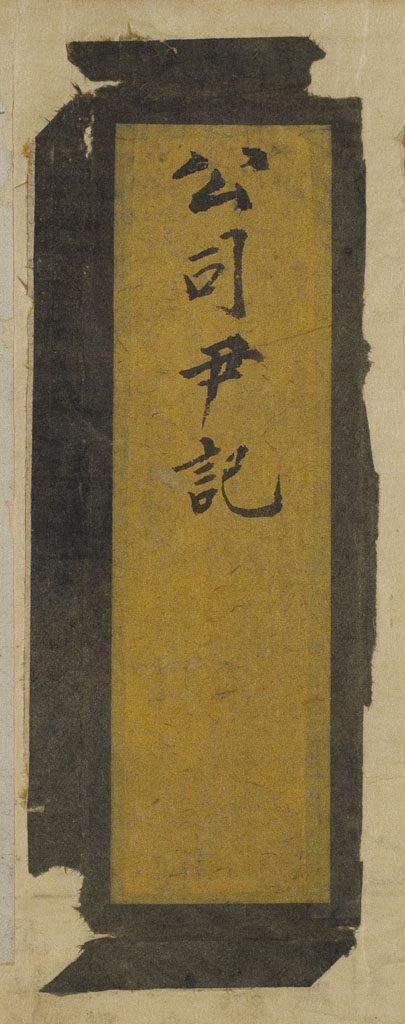 公司尹記